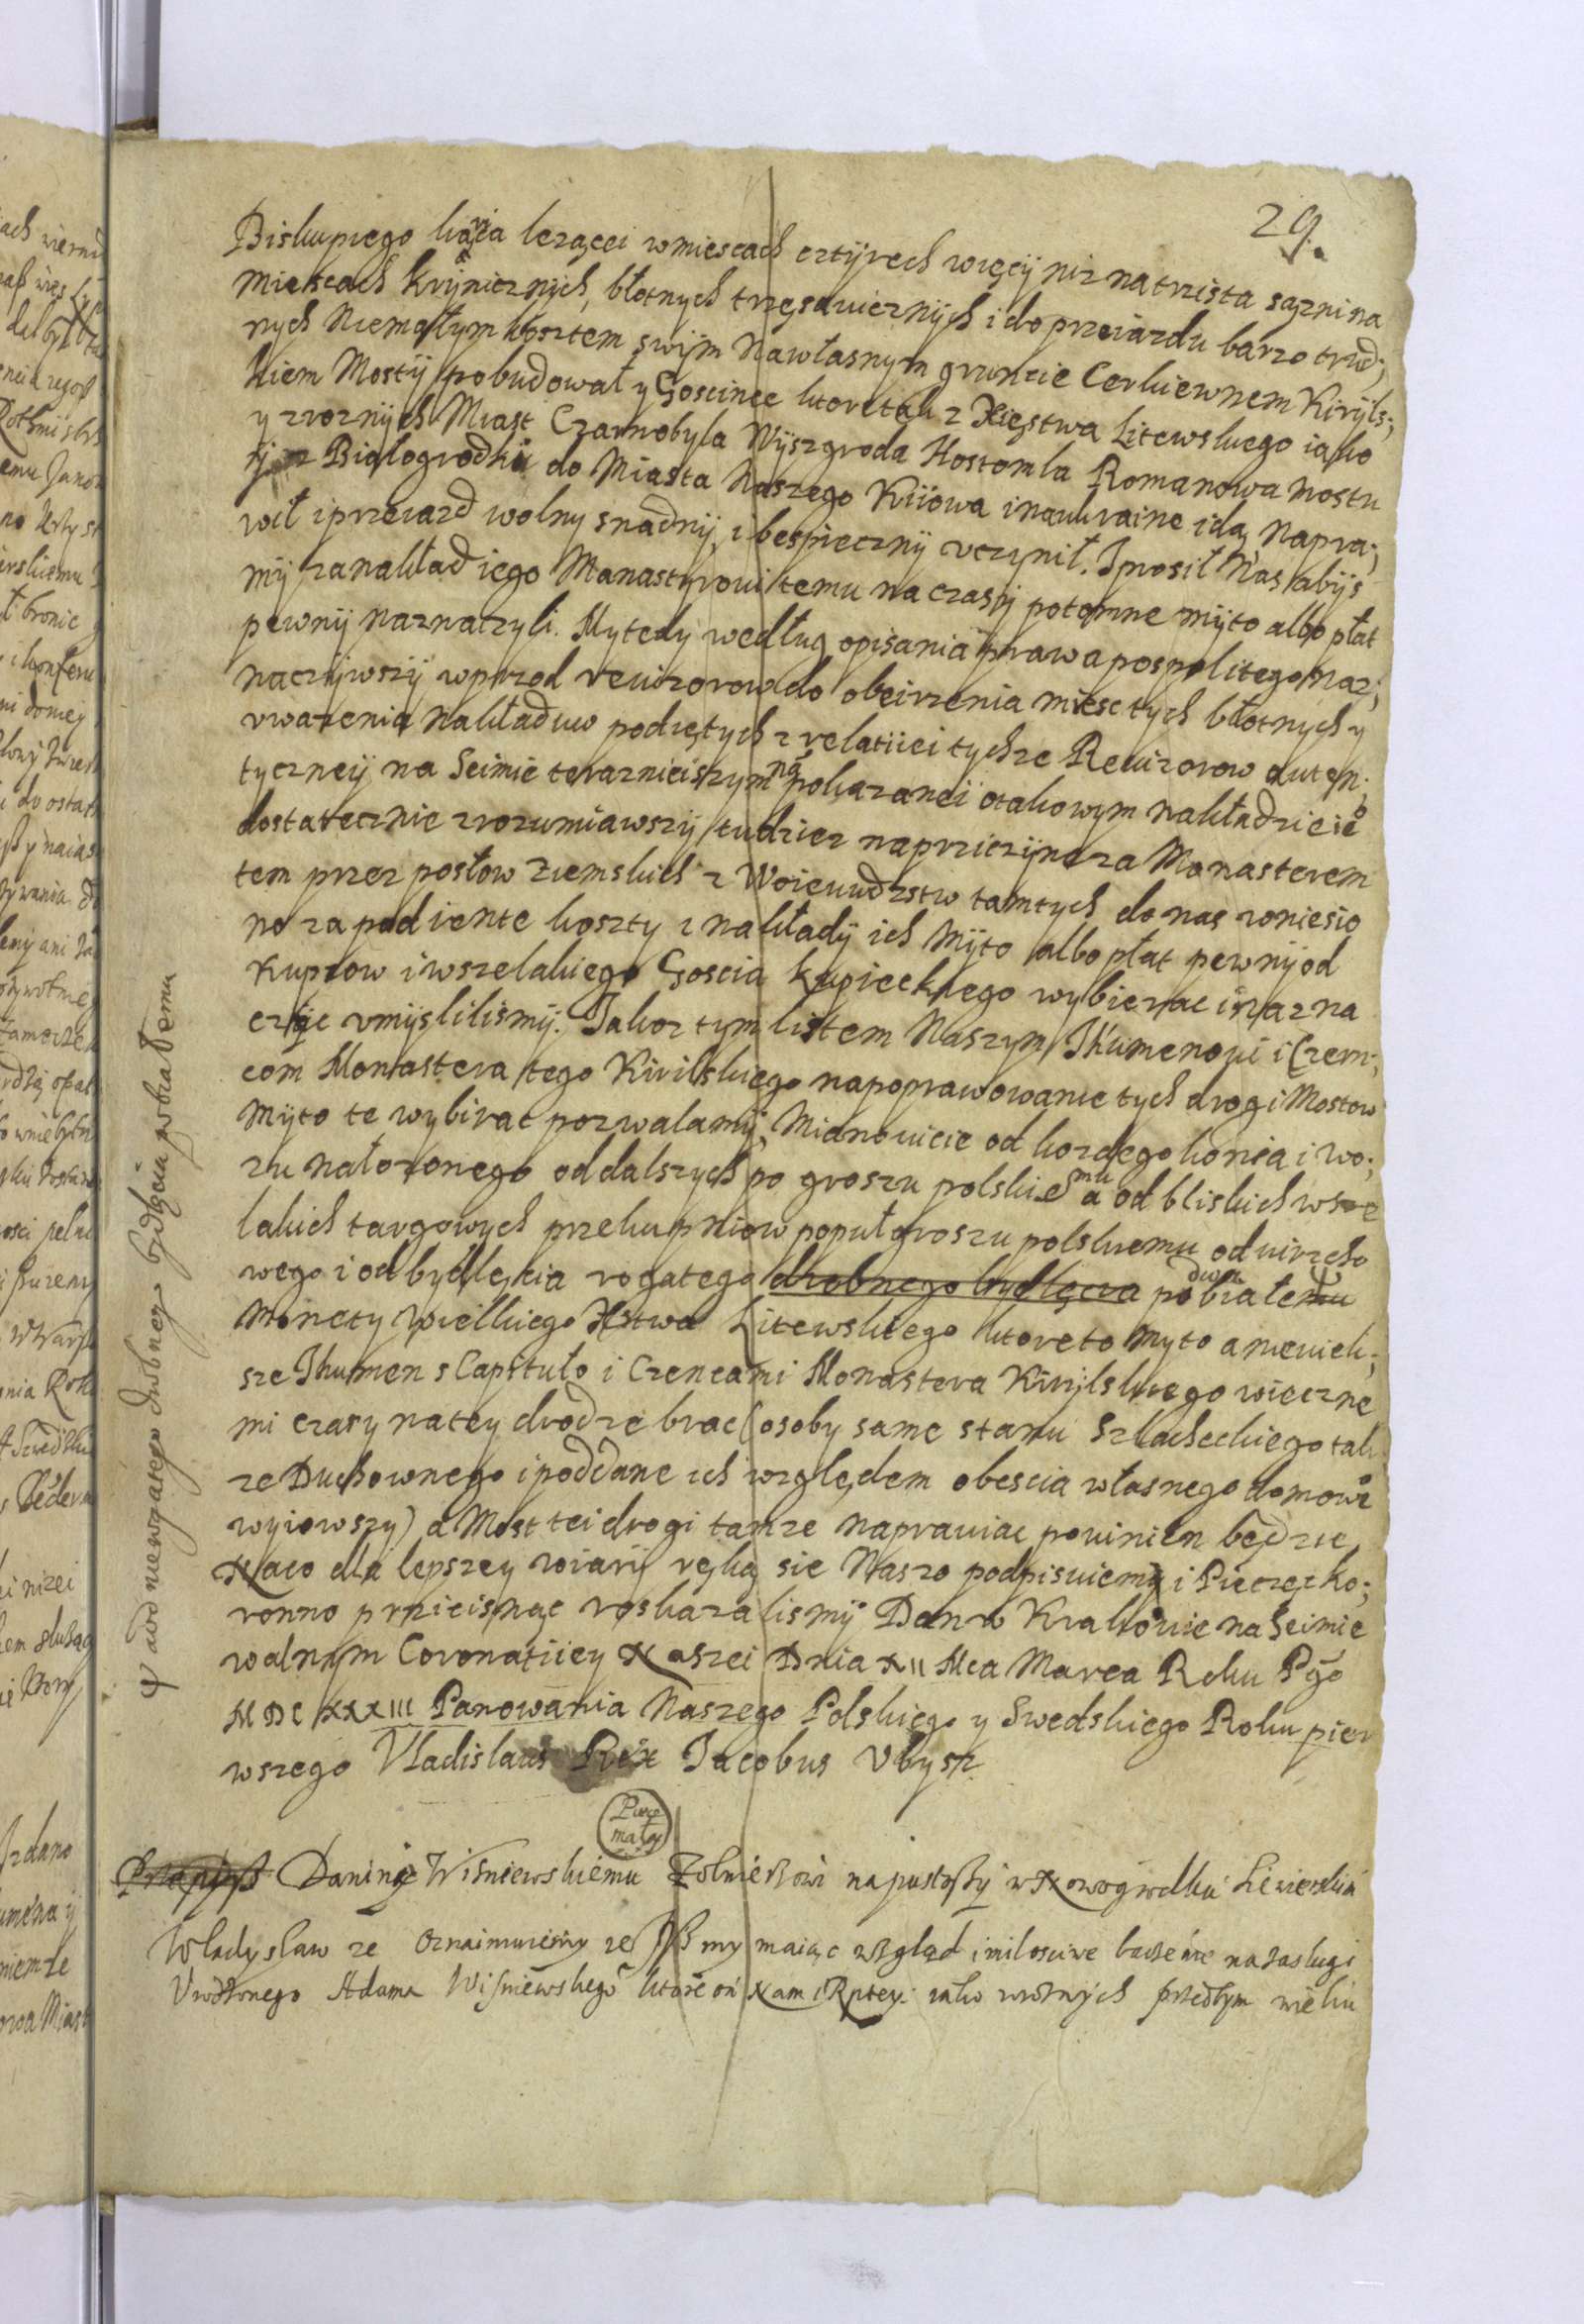 29.
Biskupiego leżącei w miescach cztÿrech więcÿ niz na trzista sązni na
Miescach krÿnicznÿch, błotnych trzęsawicznÿch i do przeiazdu barzo trud;
nych Niemałym kosztem swÿm Nawłasnym gruncie Cerkiewnem Kirÿls;
kiem Mostÿ pobudował y Gosciniec ktore tak z Xięstwa Litewskiego iako
y z roznÿch Miast Czarnobyla Wÿszgroda Hostomla Romanowa Mostu
z Białogrodki do Miasta Naszego Kiiowa i na ukraine idą Napra;
wił i przeiazd wolny snadnÿ i bespiecznÿ uczynił. I prosił Nas abÿs
mÿ za nakład iego Manastyrowi temu na czasÿ potomne mÿto albo płat
pewnÿ naznaczyli. My tedy według opisania prawa pospolitego Naz;
naczÿwszÿ wprzod rewizorow do obeirzenia miesc tych błotnych y
uwazenia nakładuw podiętych z relatiiei tychze Rewizorow auten;
tycznei na Seimie terazniejszym pokazanei o takowym nakładzie
dostatecznie zrozumiawszÿ tudziez na prziczÿne za Monasterem
tem przez posłow ziemskich z Woiewudzstw tamtych do nas wniesio
no za podiente koszty i nakładÿ ich Mÿto albo płat pewnÿ od
Kupcow i wszelakiego Goscia kupieckiego wybierac i nazna
czÿc umÿslilismÿ. Jakoz tym listem Naszym Ihumenowi i Czern;
com Monastera tego Kirilskiego na poprawowanie tych drog i Mostow
Mÿto te wybirac pozwalamÿ, Mianowicie od kozdego konia i wo;
zu nałozonego od dalszych po groszu polskiemu a od bliskich wsze
lakich targowych przekupniow po puł groszu polskiemu od wirzcho
wego i od bydlęcia rogatego drobnego bydlęcia po dwa białemu
Monety Wielkiego Xstwa Litewskiego ktore to Myto a niewiek;
sze Ihumen s Capituło i Czencami Monastera Kirÿlskiego wieczne
mi czasy na tey drodze brac (osoby same stanu Szlacheckiego tak
ze Duchownego i poddane ich względem obescia własnego domowe
wyiowszy) a Most tei drogi tamze naprawiac powinien będzie
Na co dla lepszey wiarÿ ręką sie Naszo podpisuiemÿ i Pieczęc ko;
ronno przicisnąc roskazalismÿ Dan w Krakowie na Seimie
walnym Coronatiiey Naszei Dnia XII Mca Marca Roku Pgo
M DC XXXIII Panowania Naszego Polskiego y Swedskiego Roku pier
wszego Vladislaus Rex Jacobus Vbysz
Piecz
małey
ψ a od nierogatego drobnego bydlęcia po białemu
Daninÿ Wisniewskiemu Zołnierzowi na pustoszÿ w Nowogrodku
Władysław ze Oznaimuiemy ze my maiąc wzgląd i miłosciwe baczenie na zasługi
Vrodzonego Adama Wisniewskiego ktore on Nam i Rptey: iako w roznÿch przedtym wielu